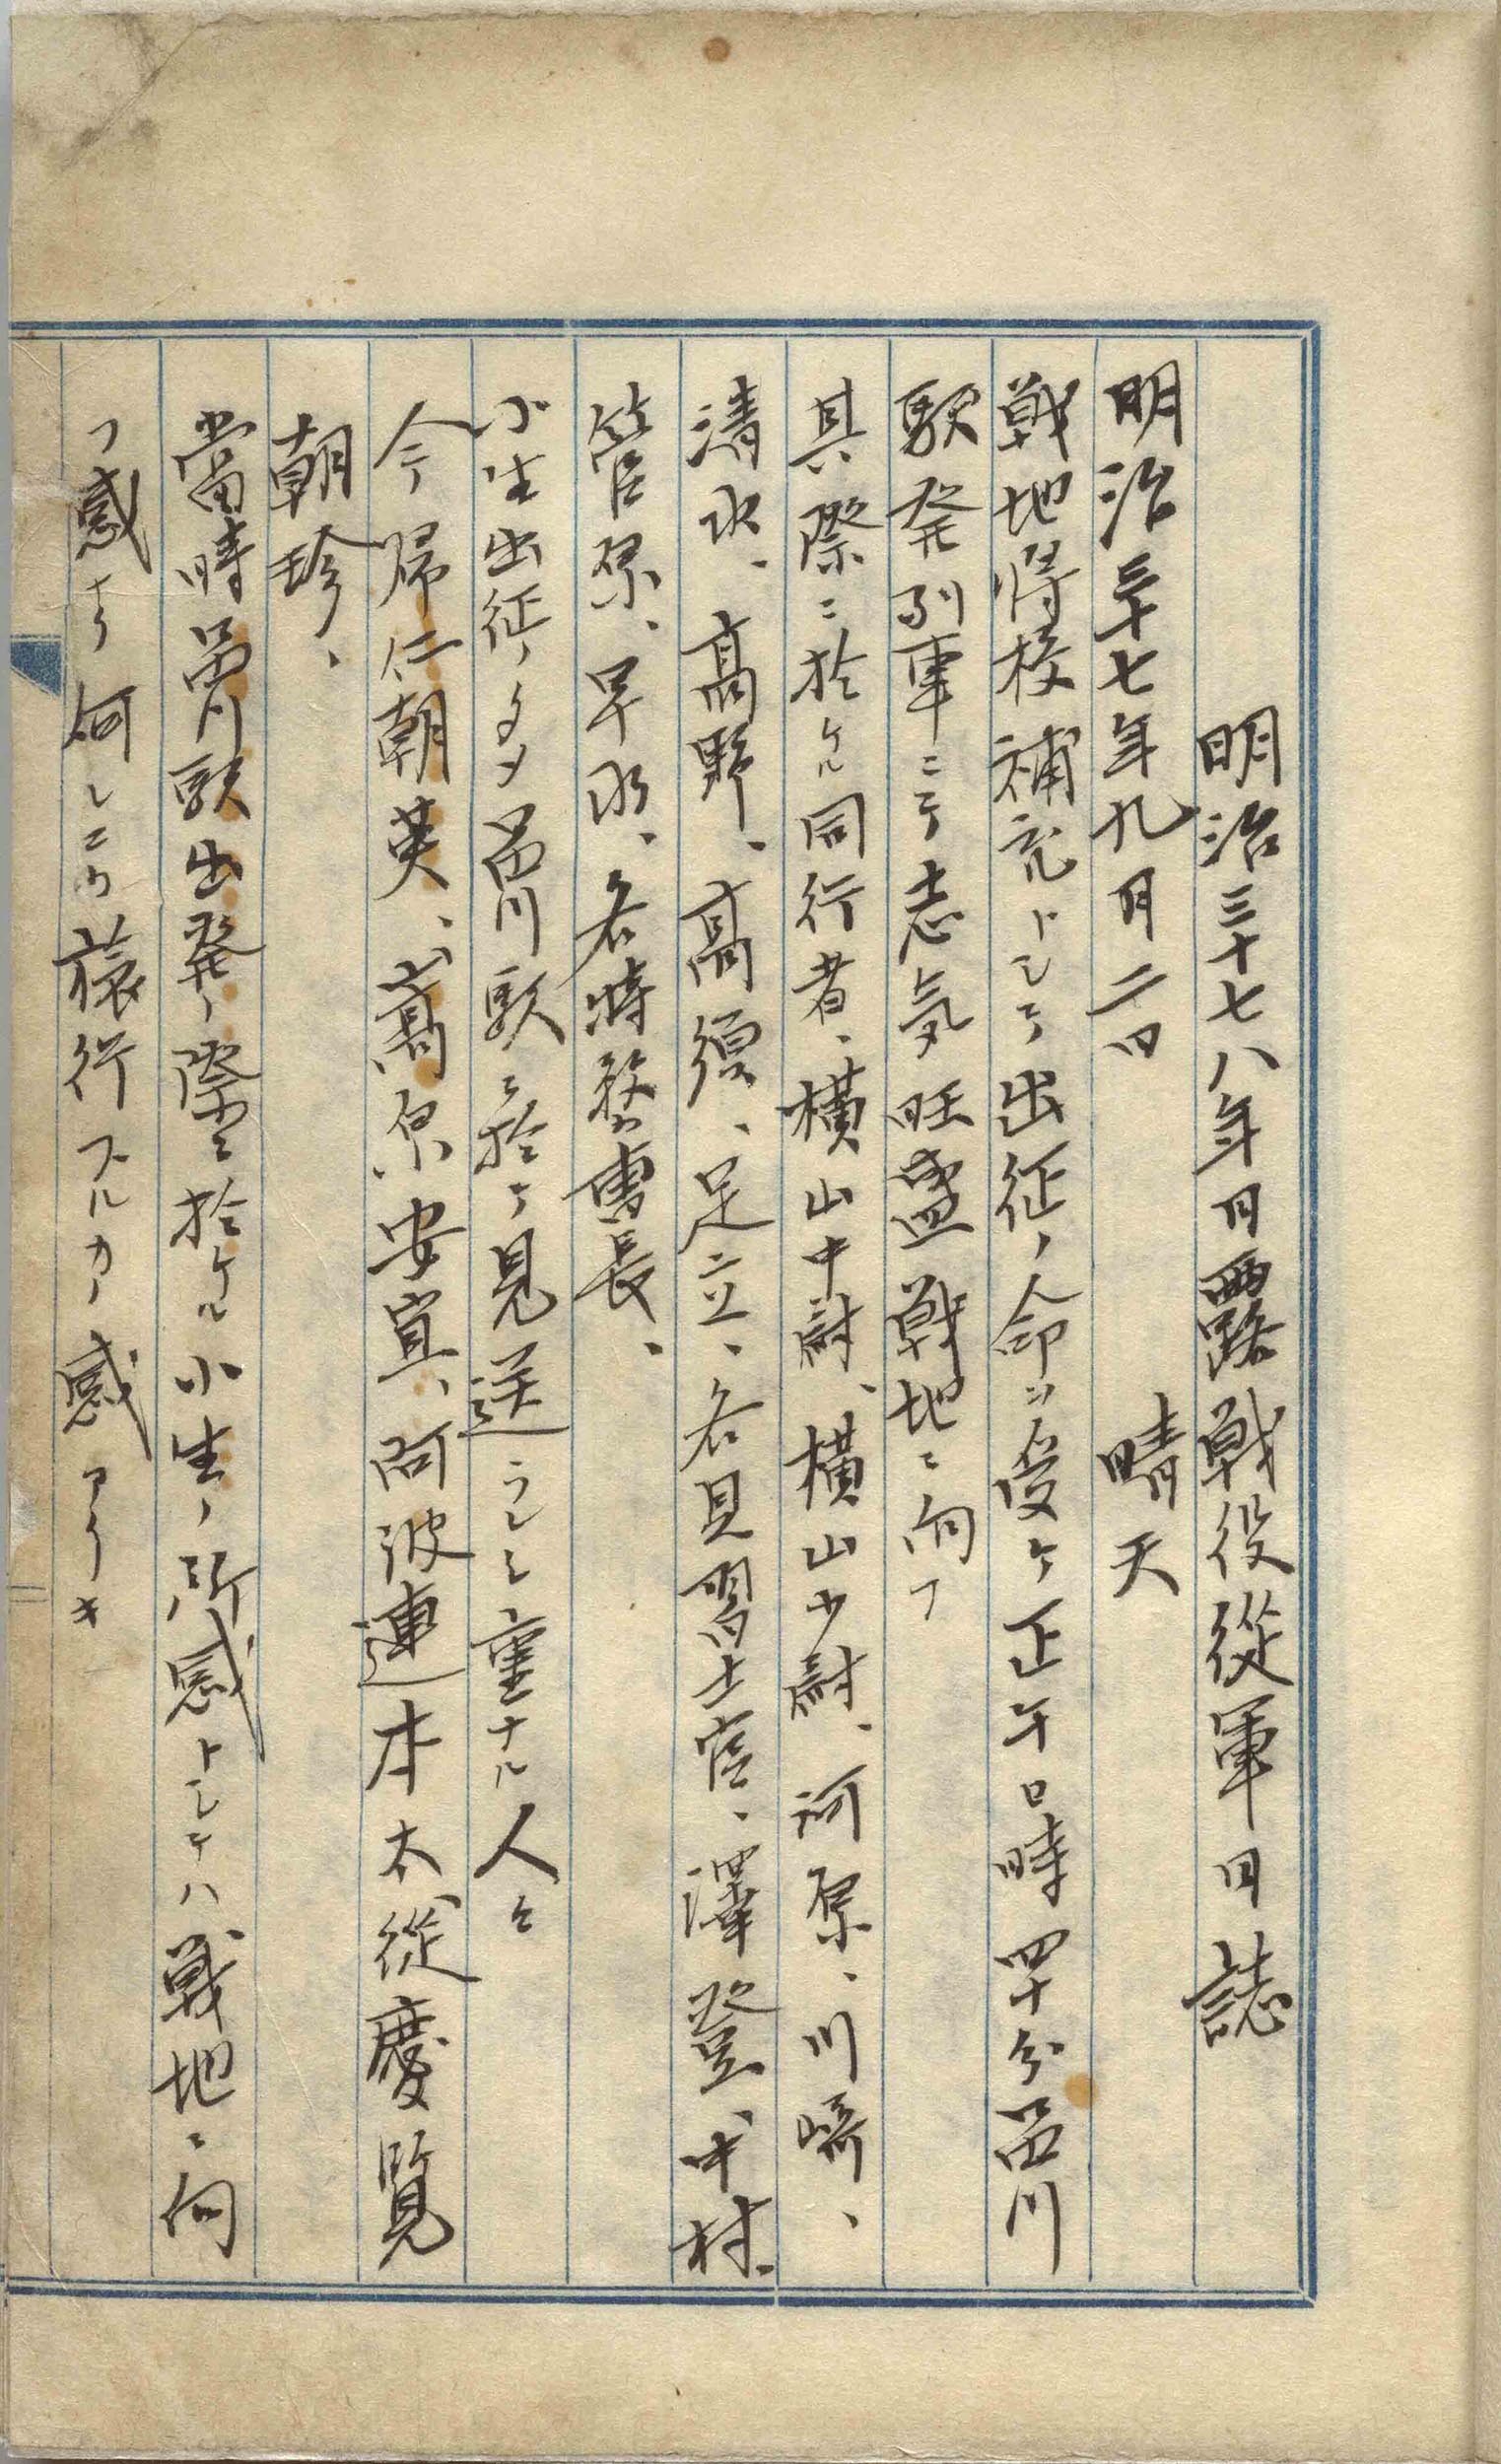 明治三十七八年日露戦役従軍日誌
明治三十七年九月二日 晴天
戦地将校補充トシテ出征ノ命ヲ受ケ正午口時四十分品川
駅発列車ニテ志気旺盛戦地ニ向フ
其際ニ於ケル同行者、横山中尉、横山少尉、河原、川崎、
清水、高野、高須、足立、各見習士官、澤登、中村、
管原、早水、各特務曹長、
小生出征ノタメ品川駅ニ於テ見送ラレシ重ナル人々
今帰仁朝英、嵩原安宣、阿波連本太従慶覧
朝珍、
當時品川駅出発ノ際ニ於ケル小生ノ所感トシテハ戦地ニ向
フ感ナク何レニカ旅行スルカノ感アリキ